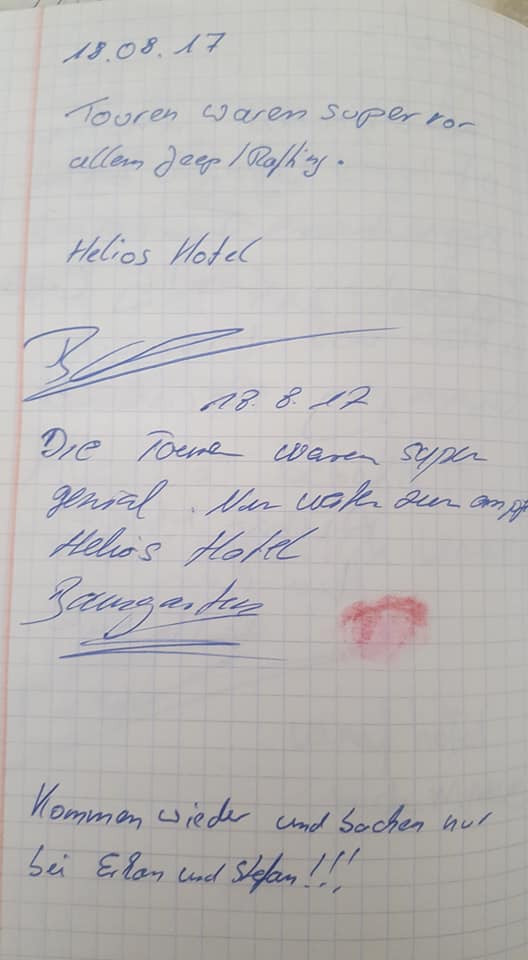 18.08.17
Touren waren super vor
allem Jeep/Rafting.
Helios Hotel
18.8.17
Die Touren waren super
genial. Nur weiter zum
Helios Hotel
Baumgarten
Kommen wieder und buchen nur
bei Erkan und Stefan!!!